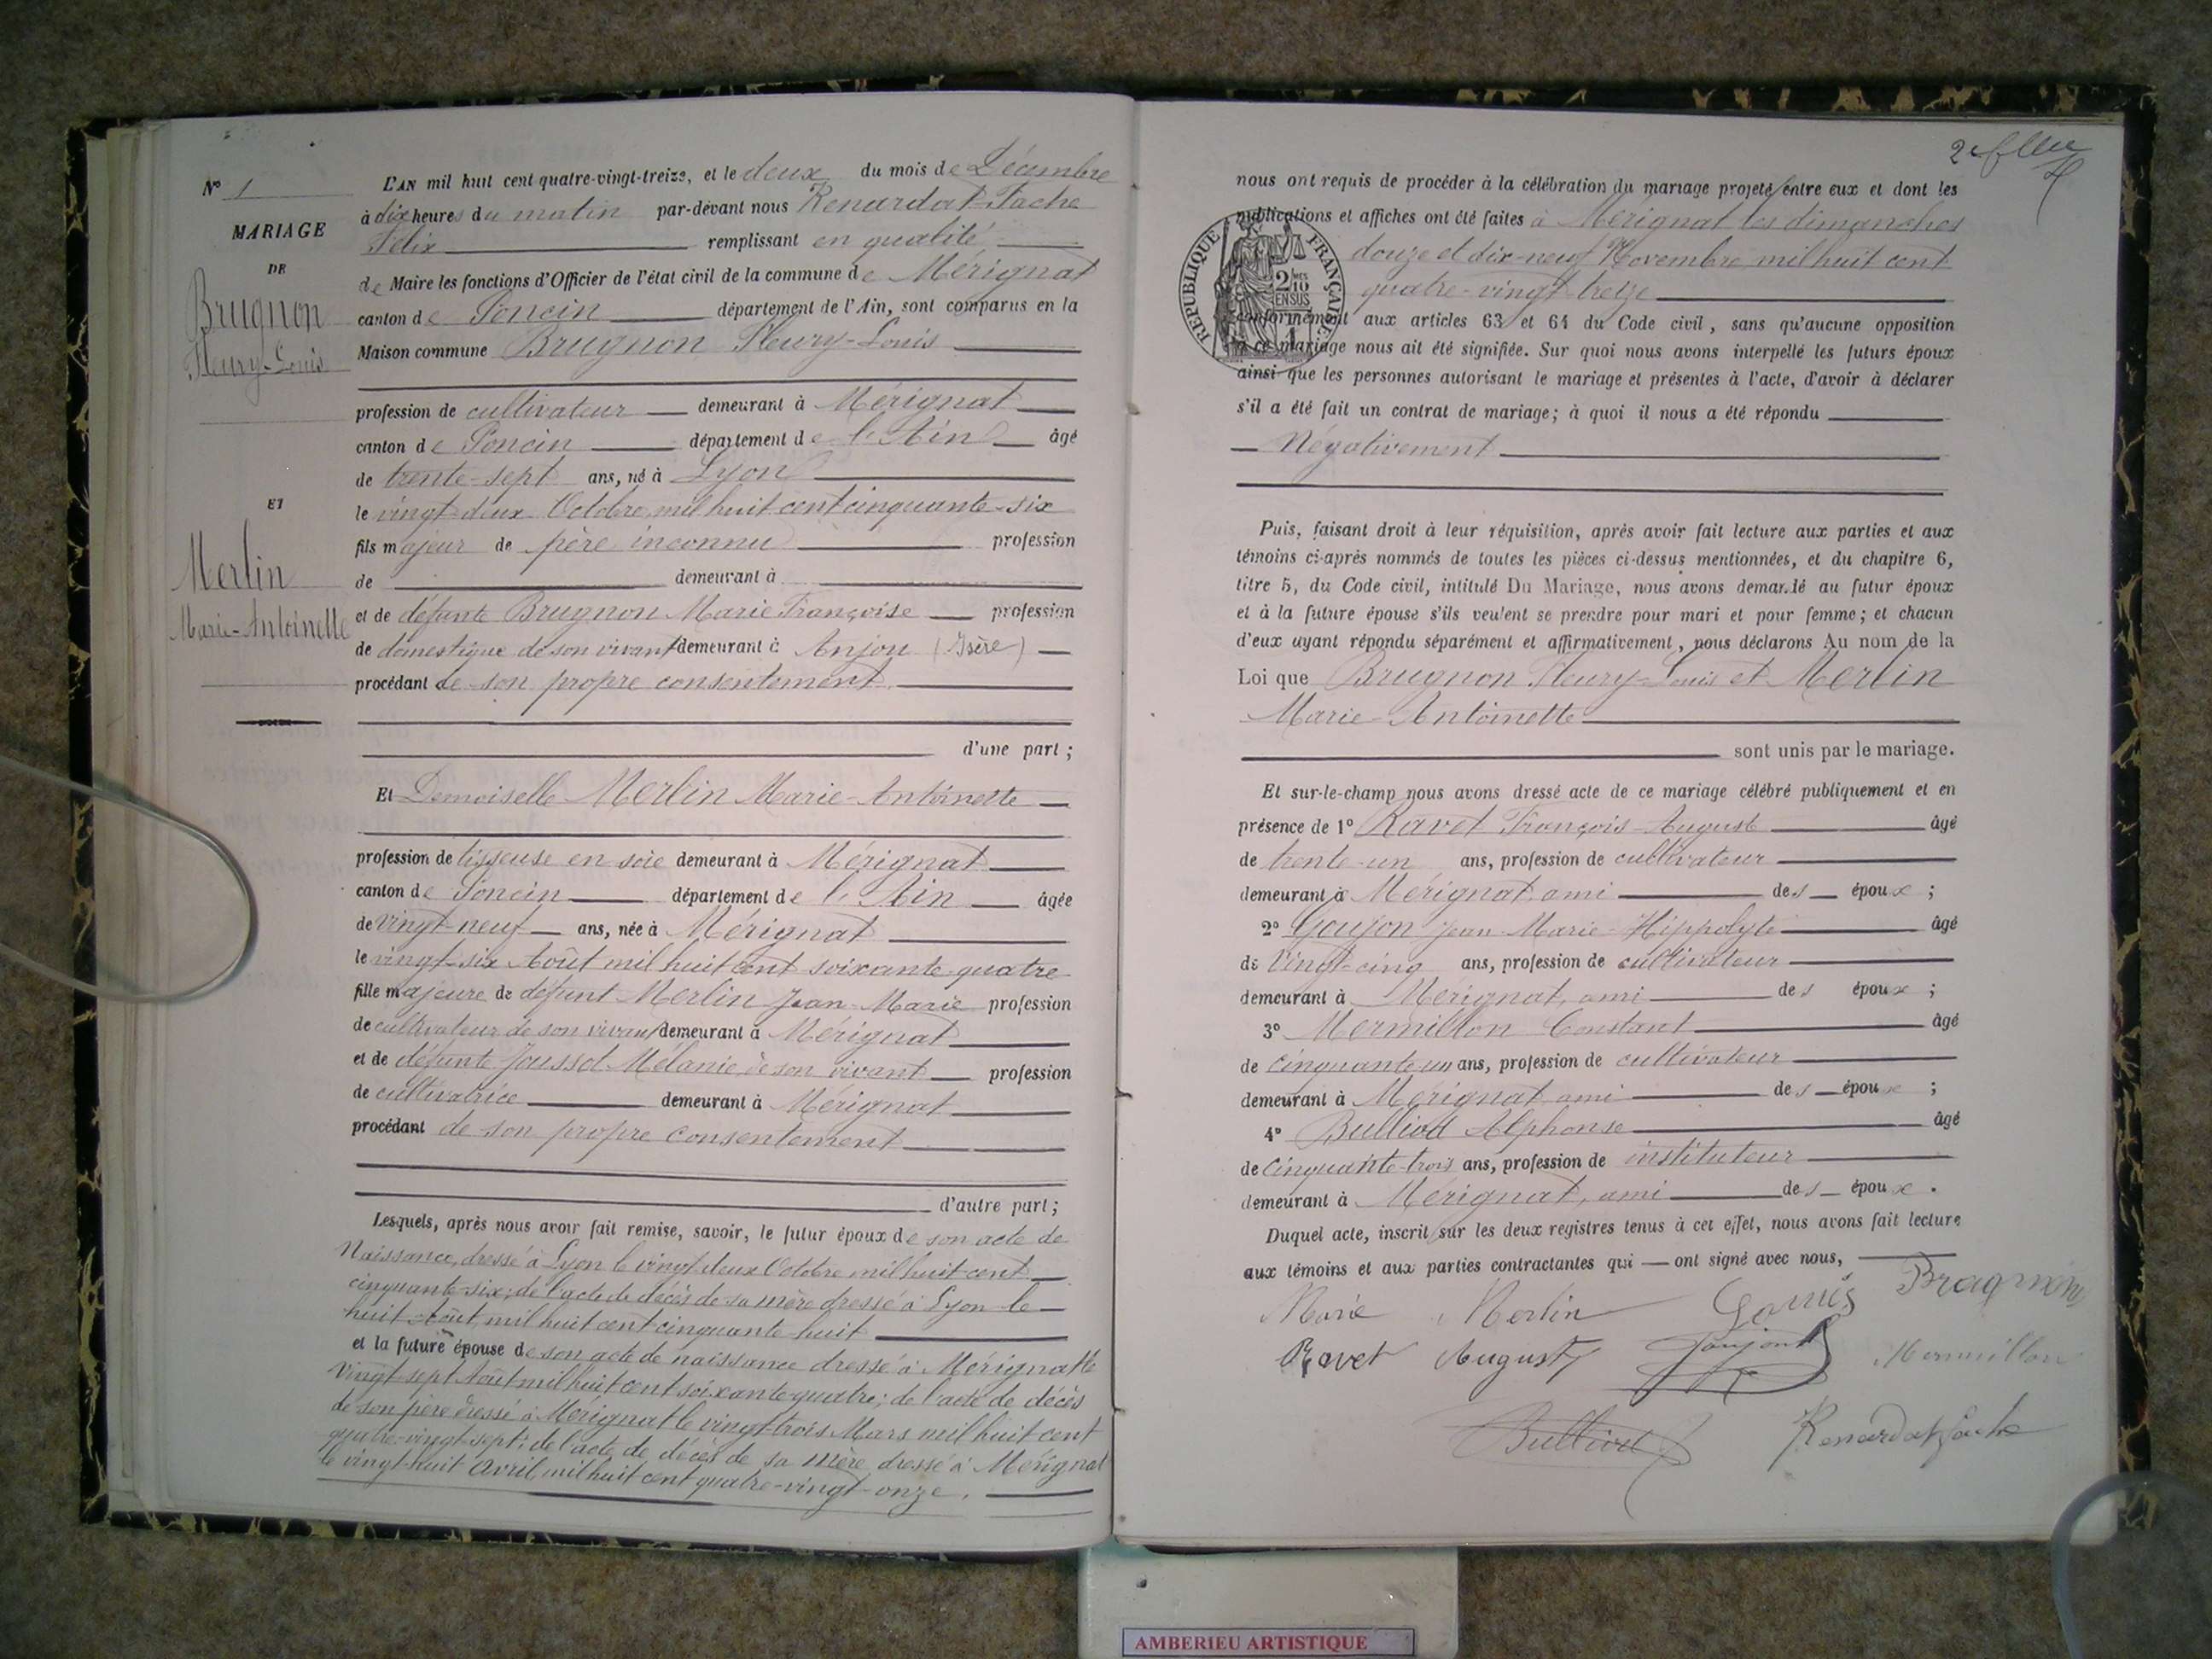 N° 1
MARIAGE
DE
Brugnon
Fleury-Louis
ET
Merlin
Marie-Antoinette
L'AN mil huit cent quatre-vingt-treize, et le deux du mois de Décembre
à dix heures du matin par-devant nous Renardat-Fache
Félix remplissant en qualité
de Maire les fonctions d'Officier de l'état civil de la commune de Mérignat
canton de Poncin département de l'Ain, sont comparus en la
Maison commune Brugnon Fleury-Louis
profession de cultivateur demeurant à Mérignat
canton de Poncin département de l'Ain âgé
de trente-sept ans, né à Lyon
le vingt-deux Octobre mil huit cent cinquante-six
fils majeur de père inconnu profession
de demeurant à
et de défunte Brugnon Marie Françoise profession
de domestique de son vivant demeurant à Anjou (Isère)
procédant de son propre consentement
d'une part ;
Et Demoiselle Merlin Marie-Antoinette
profession de tisseuse en soie demeurant à Mérignat
canton de Poncin département de l'Ain âgée
de vingt-neuf ans, née à Mérignat
le vingt-six Août mil huit cent soixante-quatre
fille majeure de défunt Merlin Jean-Marie profession
de cultivateur de son vivant demeurant à Mérignat
et de défunte Joussot Mélanie de son vivant profession
de cultivatrice demeurant à Mérignat
procédant de son propre consentement
d'autre part ;
Lesquels, après nous avoir fait remise, savoir, le futur époux de son acte de
Naissance, dressé à Lyon le vingt-deux Octobre mil huit cent
cinquante-six ; de l'acte de décès de sa mère dressé à Lyon le
huit Août mil huit cent cinquante-huit
et la future épouse de son acte de naissance dressé à Mérignat le
vingt-sept Août mil huit cent soixante-quatre ; de l'acte de décès
de son père dressé à Mérignat le vingt-trois Mars mil huit cent
quatre-vingt-sept ; de l'acte de décès de sa mère dressé à Mérignat
le vingt-huit Avril mil huit cent quatre-vingt-onze.
nous ont requis de procéder à la célébration du mariage projeté entre eux et dont les
publications et affiches ont été faites à Mérignat les dimanches
douze et dix-neuf Novembre mil huit cent
quatre-vingt-treize
RÉPUBLIQUE FRANÇAISE
2/10 EN SUS
conformément aux articles 63 et 64 du Code civil, sans qu'aucune opposition
à ce mariage nous ait été signifiée. Sur quoi nous avons interpellé les futurs époux
ainsi que les personnes autorisant le mariage et présentes à l'acte, d'avoir à déclarer
s'il a été fait un contrat de mariage ; à quoi il nous a été répondu
Négativement
Puis, faisant droit à leur réquisition, après avoir fait lecture aux parties et aux
témoins ci-après nommés de toutes les pièces ci-dessus mentionnées, et du chapitre 6,
titre 5, du Code civil, intitulé Du Mariage, nous avons demandé au futur époux
et à la future épouse s'ils veulent se prendre pour mari et pour femme ; et chacun
d'eux ayant répondu séparément et affirmativement, nous déclarons Au nom de la
Loi que Brugnon Fleury-Louis et Merlin
Marie-Antoinette
sont unis par le mariage.
Et sur-le-champ nous avons dressé acte de ce mariage célébré publiquement et en
présence de 1° Ravet François-August âgé
de trente-un ans, profession de cultivateur
demeurant à Mérignat, ami des époux ;
2° Goujon Jean-Marie-Hippolyte âgé
de Vingt-cinq ans, profession de cultivateur
demeurant à Mérignat, ami des époux ;
3° Mermillon Constant âgé
de Cinquante-un ans, profession de cultivateur
demeurant à Mérignat ami des époux ;
4° Bulliod Alphonse âgé
de Cinquante-trois ans, profession de instituteur
demeurant à Mérignat, ami des époux.
Duquel acte, inscrit sur les deux registres tenus à cet effet, nous avons fait lecture
aux témoins et aux parties contractantes qui ont signé avec nous,
Marie Merlin Louis Brugnon
Ravet August Goujon Mermillon
Bulliod Renardat fache
AMBERIEU ARTISTIQUE